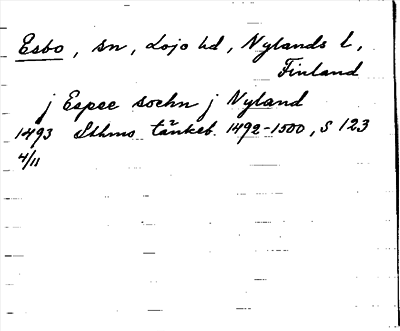 Esbo, sn, Lojo hd, Nylands l,
Finland
j Espee sochn j Nyland
1493 Sthms tänkeb. 1492-1500, S 123
4/11